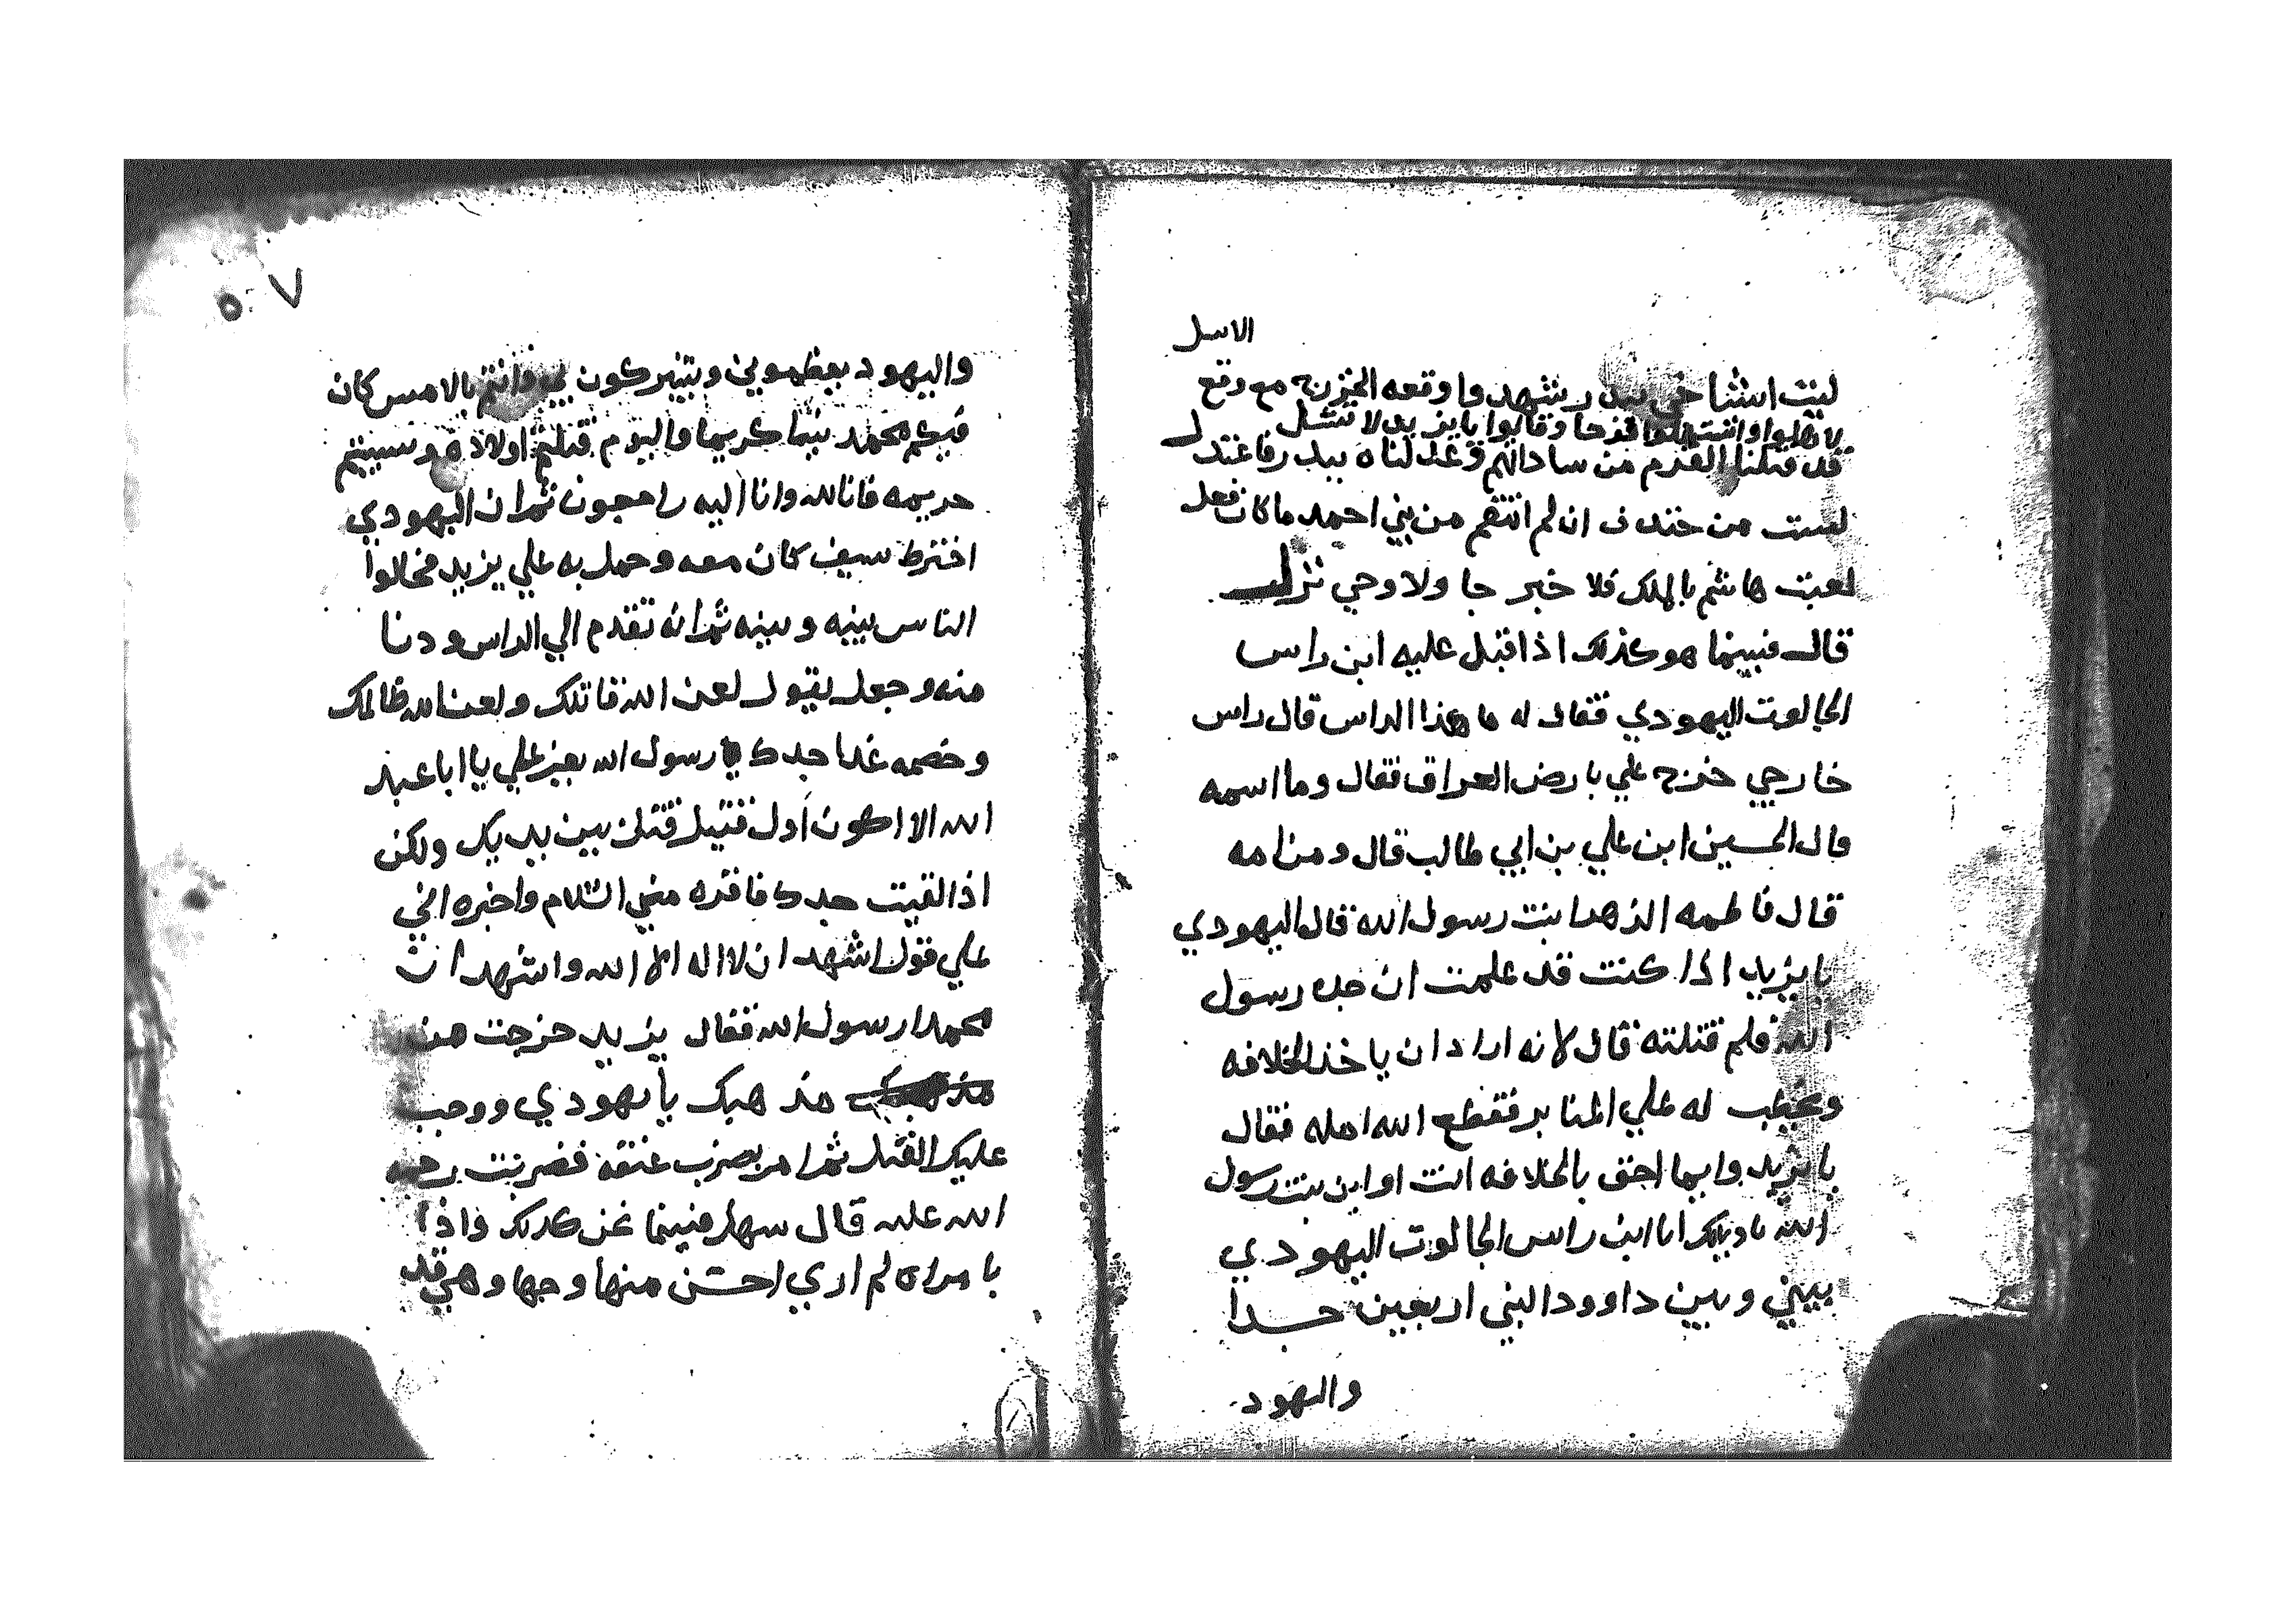 الاسل
ليت اشياخي ببدر شهدوا وقعه الخزرج مع وقع
لاهلوا واستهلوا فرحا وقالوا يايزيد لا تشل
قد قتلنا القرم من ساداتهم وعدلناه ببدر فاعتدل
لست من خندف ان لم انتقم من بني احمد ما كان فعل
لعبت هاشم بالملك فلا خبر جا ولا وحي نزل
قال فبينما هو كذلك اذ اقبل عليه ابن راس
الجالوت اليهودي فقال له ما هذا الراس قال راس
خارجي خرج علي بارض العراق فقال وما اسمه
قال الحسين ابن علي بن ابي طالب قال ومن امه
قال فاطمه الزهرا بنت رسول الله قال اليهودي
يا يزيد اذا كنت قد علمت ان جده رسول
الله فلم قتلته قال لانه اراد ان ياخذ الخلافه
ويخطب له علي المنابر فقطع الله اهله فقال
يا يزيد وايما احق بالخلافه انت او ابن بنت رسول
الله يا ويلك انا ابن راس الجالوت اليهودي
بيني وبين داوود النبي اربعين جدا
واليهود
٥٧
واليهود يعظموني ويتبركون بي وانتم بالامس كان
فيكم محمد نبيا كريما واليوم قتلتم اولاده وسبيتم
حريمه فانا لله وانا اليه راجعون ثم ان اليهودي
اخترط سيف كان معه وحمل به علي يزيد فحالوا
الناس بينه وبينه ثم انه تقدم الي الراس ودنا
منه وجعل يقول لعن الله قاتلك ولعن الله ظالمك
وخصمه غدا جدك رسول الله يعز علي يا ابا عبد
الله الا اكون اول قتيل قتل بين يديك ولكن
اذا لقيت جدك فاقره مني السلام واخبره اني
علي قول اشهد ان لا اله الا الله واشهد ان
محمدا رسول الله فقال يزيد خرجت من
مذهبك يا يهودي ووجب
عليك القتل ثم امر بضرب عنقه فضربت رحمه
الله عليه قال سهل فبينما نحن كذلك واذا
بامراه لم اري احسن منها وجها وهي قد